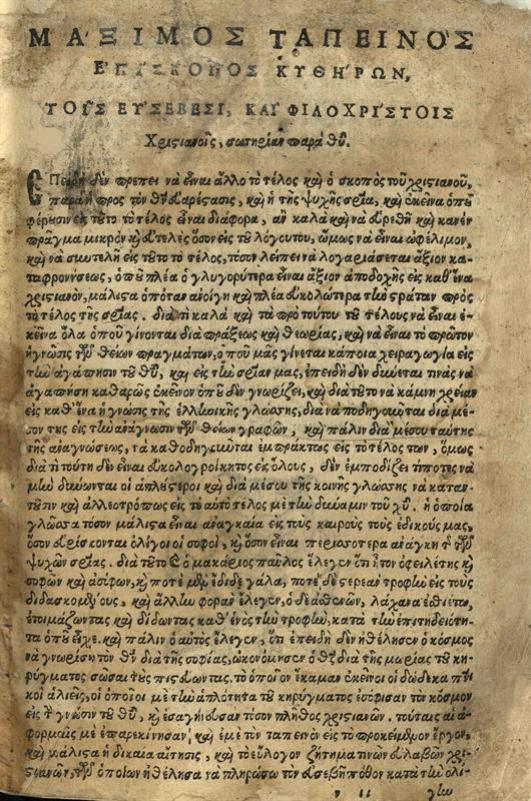 ΜΑΞΙΜΟΣ ΤΑΠΕΙΝΟΣ
ΕΠΙΣΚΟΠΟΣ ΚΥΘΗΡΩΝ,
ΤΟΙΣ ΕΥΣΕΒΕΣΙ, ΚΑΙ ΦΙΛΟΧΡΙΣΤΟΙΣ
Χριστιανοῖς, σωτηρίαν παρὰ θῦ.
ΕΠειδὴ δὲν πρέπει νὰ εἶναι ἄλλο τὸ τέλος καὶ ὁ σκοπὸς τοῦ χριστιανοῦ,
παρὰ ἡ πρὸς τὸν θν̀ εὐαρέστησις, καὶ ἡ τῆς ψυχῆς σρία, καὶ ἐκεῖνα ὁποῦ
φέρουσιν εἰς τοῦτο τὸ τέλος εἶναι διάφορα, ἂν καλὰ καὶ νὰ εὑρεθῆ καὶ κανὲν
πρᾶγμα μικρὸν κ εὐτελὲς ὅσον εἰς τοῦ λόγου του, ὅμως νὰ εἶναι ὠφέλιμον,
καὶ νὰ συντελῆ εἰς τοῦτο τὸ τέλος, τόσον λείπει νὰ λογαριάσεται ἄξιον κα-
ταφρονήσεως, ὁποῦ πλέα ὀγλυγορύτερα εἶναι ἄξιον ἀποδοχῆς εἰς καθ' ἕνα
χριστιανόν, μάλιστα ὁπόταν ἀνοίγη καὶ πλέα εὐκολώτερα τὴν στράταν πρὸς
τὸ τέλος τῆς σρίας. διατὶ καλὰ καὶ τὰ πρὸ τούτου τοῦ τέλους νὰ εἶναι ἐ-
κεῖνα ὅλα ὁποῦ γίνονται διὰ πράξεως καὶ θεωρίας, καὶ νὰ εἶναι τὸ πρῶτον
ἡ γνῶσις τῶν θείων πραγμάτων, ὁποῦ μᾶς γίνεται κάποια χειραγωγία εἰς
τὴν ἀγάπησιν τοῦ θῦ, καὶ εἰς τὴν σρίαν μας, ἐπειδὴ δὲν δύνεται τινὰς νὰ
ἀγαπήση καθαρῶς ἐκεῖνον ὁποῦ δὲν γνωρίζει, καὶ διὰ τοῦτο νὰ κάμνη χρείαν
εἰς καθ' ἕνα ἡ γνῶσις τῆς ἑλληνικῆς γλώσσης, διὰ νὰ ποδηγοῦνται διὰ μέ-
σον της εἰς τὴν ἀνάγνωσιν τῶν θείων γραφῶν, καὶ πάλιν διὰ μέσου ταύτης
τῆς ἀναγνώσεως, τὰ καθοδηγοῦνται ἐμπράκτως εἰς τὸ τέλος των, ὅμως
διατὶ τούτη δὲν εἶναι εὐκολογροίκητος εἰς ὅλους, δὲν ἐμποδίζει τίποτες νὰ
μὴν δύνωνται οἱ ἁπλούστεροι καὶ διὰ μέσου τῆς κοινῆς γλώσσης νὰ καταν-
τοῦσιν καὶ ἀλλεοτρόπως εἰς τὸ αὐτὸ τέλος μὲ τὴν δύναμιν τοῦ χῦ. ἡ ὁποία
γλῶσσα τόσον μάλιστα εἶναι ἀναγκαία εἰς τοὺς καιροὺς τοὺς ἐδικούς μας,
ὅσον εὑρίσκονται ὀλίγοι οἱ σοφοί, κ ὅσον εἶναι περισσότερα ἀνάγκη τῆς τῶν
ψυχῶν σρίας. διὰ τοῦτο ὁ μακάριος παῦλος ἔλεγεν ὅτι ἦτον ὀφειλέτης κ
σοφῶν καὶ ἀσόφων, κ ποτὲ μὲν ἔδιδε γάλα, ποτὲ δὲ στερεὰν τροφὴν εἰς τοὺς
διδασκομένους, καὶ ἄλλην φορὰν ἔλεγεν, ὁ δὲ ἀσθενῶν, λάχανα ἐσθιέτω,
ἑτοιμάζωντας καὶ δίδωντας καθ' ἑνὸς τὴν τροφὴν, κατὰ τὴν ἐπιτηδειότη-
τα ὁποῦ εἶχε. καὶ πάλιν ὁ αὐτὸς ἔλεγεν, ὅτι ἐπειδὴ δὲν ἠθέλησεν ὁ κόσμος
νὰ γνωρίση τὸν θν̀ διὰ τῆς σοφίας, ᾠκονόμησεν ὁ θς̀ διὰ τῆς μωρίας τοῦ κη-
ρύγματος σῶσαι τοὺς πιστεύοντας. τὸ ὁποῖον ἔκαμαν ἐκεῖνοι οἱ δώδεκα πτω-
χοὶ ἁλιεῖς, οἱ ὁποῖοι μὲ τὴν ἁπλότητα τοῦ κηρύγματος ἐσόφισαν τὸν κόσμον
εἰς τὴν γνῶσιν τοῦ θῦ, κ ἐσαγήνευσαν τόσον πλῆθος χριστιανῶν. τούταις αἱ ἀ-
φορμαῖς μὲ ἐπαρεκίνησαν καὶ ἐμὲ τὸν ταπεινὸν εἰς τὸ προκείμενον ἔργον,
καὶ μάλιστα ἡ δικαία αἴτησις, καὶ τὸ εὔλογον ζήτημα τινῶν εὐλαβῶν χρι-
στιανῶν, τῶν ὁποίων ἠθέλησα νὰ πληρώσω τὸν εὐσεβῆ πόθον κατὰ τὴν ὀλί-
γην